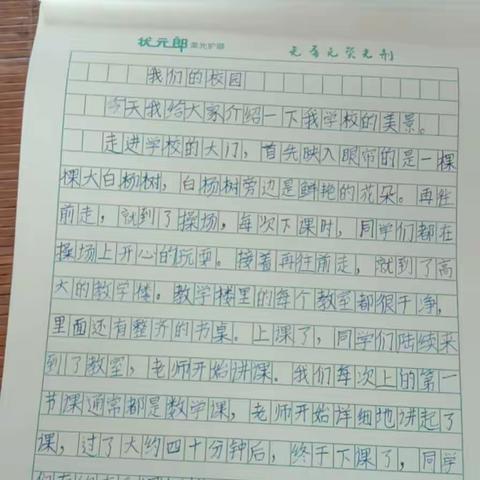 状元郎 柔光护眼
无毒无荧光剂
我们的校园
今天我给大家介绍一下我学校的美景。
走进学校的大门，首先映入眼帘的是一棵
棵大白杨树，白杨树旁边是鲜艳的花朵。再往
前走，就到了操场，每次下课时，同学们都在
操场上开心的玩耍。接着再往前走，就到了高
大的教学楼。教学楼里的每个教室都很干净，
里面还有整齐的书桌。上课了，同学们陆续来
到了教室，老师开始讲课。我们每次上的第一
节课通常都是数学课，老师开始详细地讲起了
课，过了大约四十分钟后，终于下课了，同学